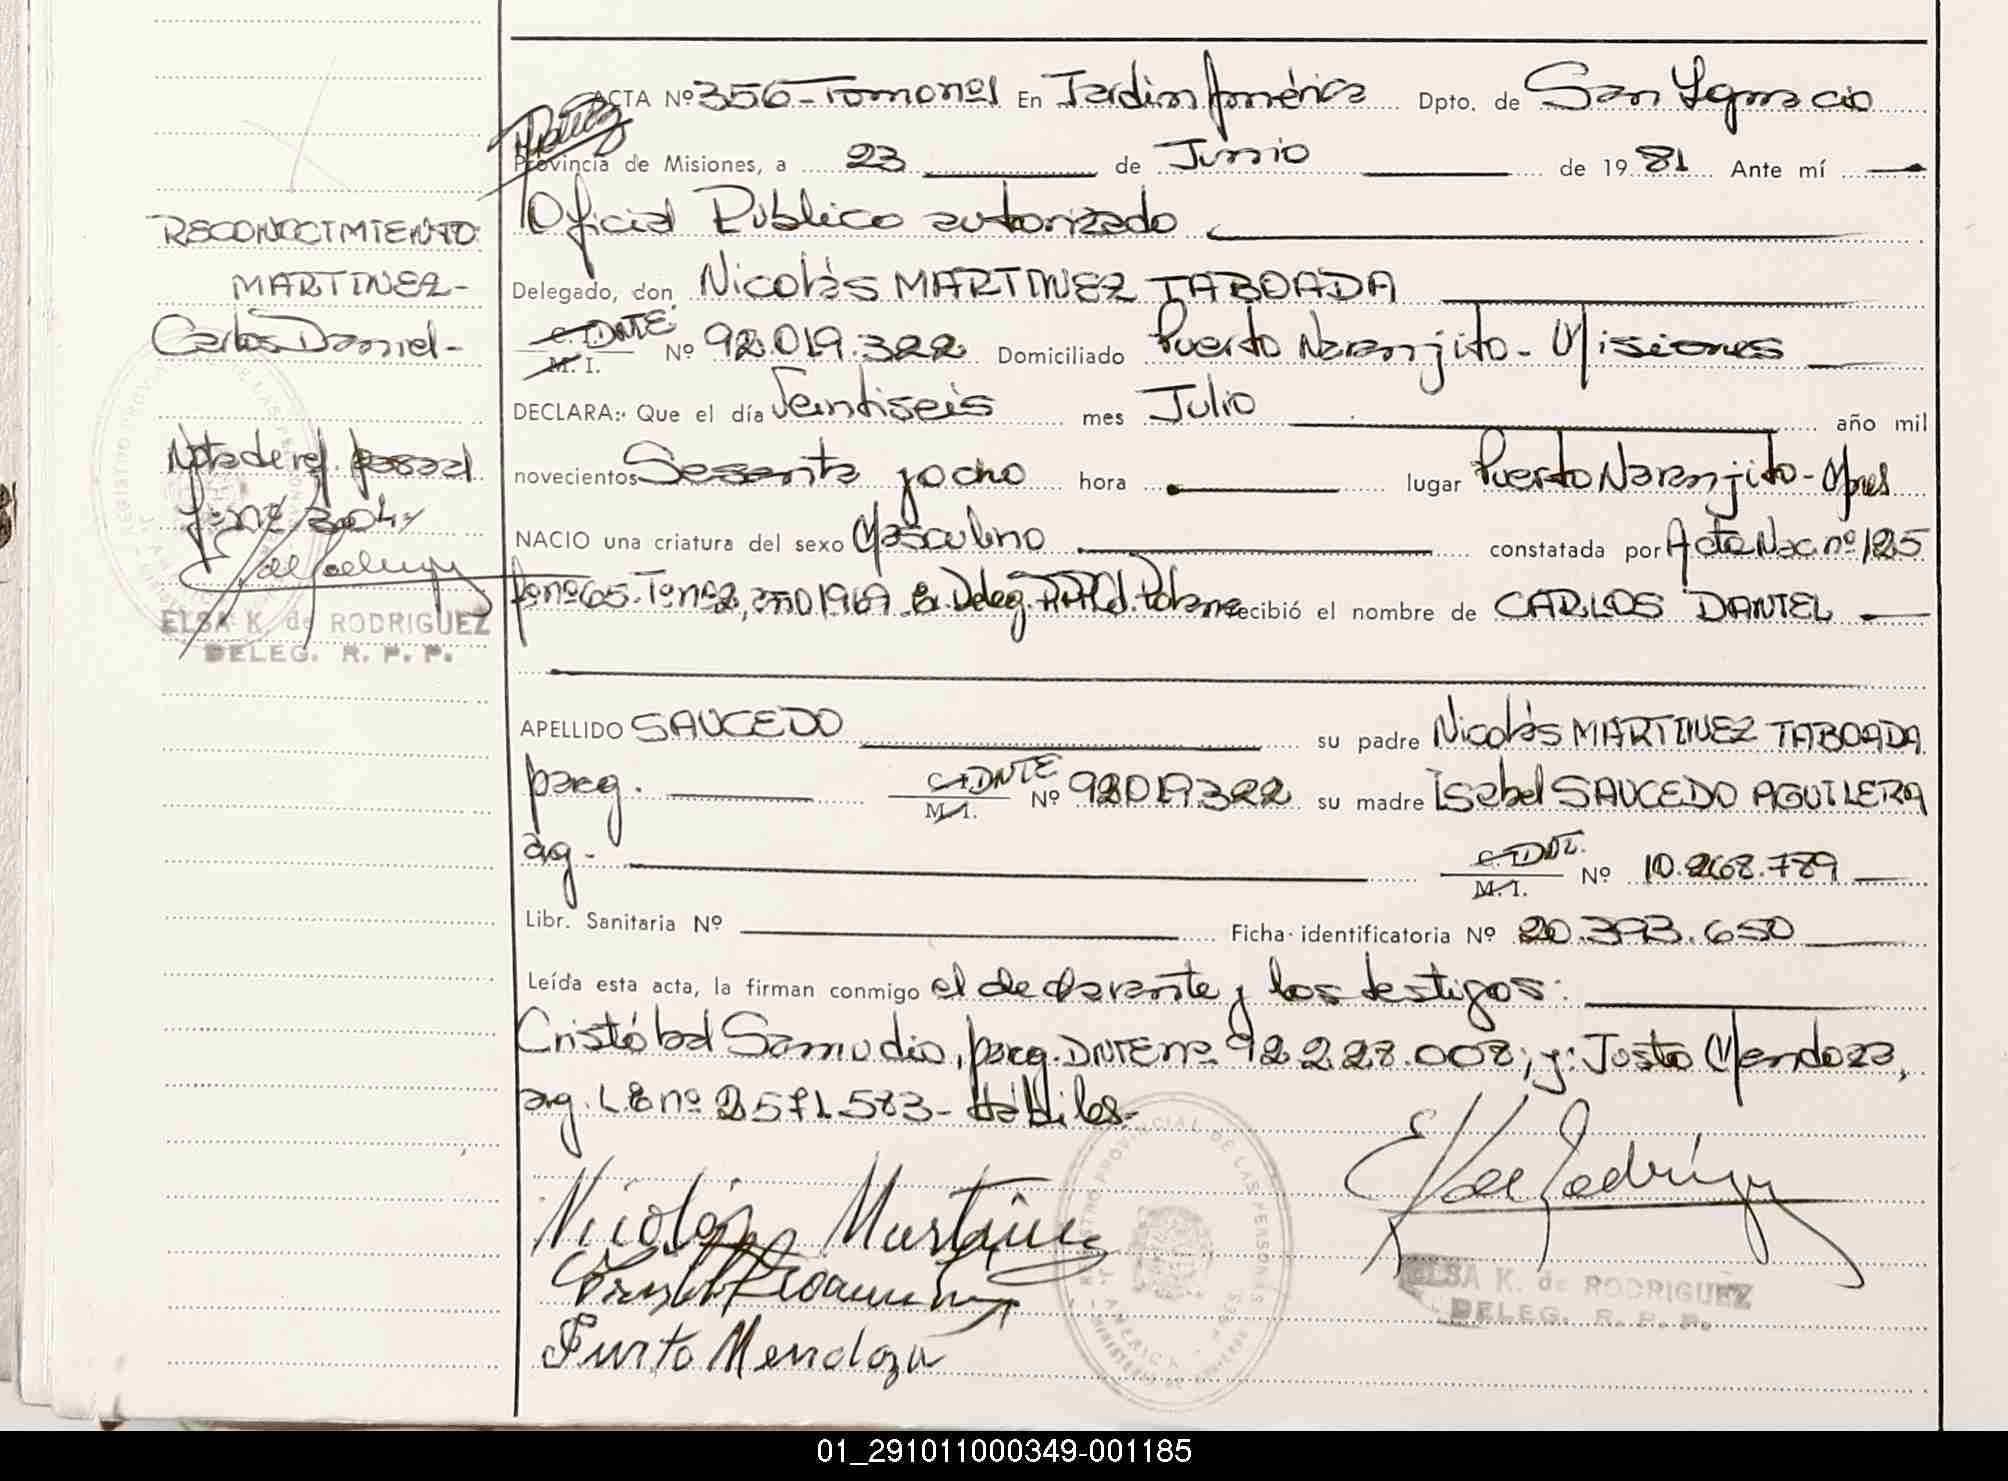 ACTA Nº 356 - Tomo nº 1 En Jardín América Dpto. de San Ignacio
Provincia de Misiones, a 23 de Junio de 1981 Ante mí
Oficial Publico autorizado
Delegado, don Nicolás MARTINEZ TABOADA
C.I. DNTE M. I. Nº 92.019.322 Domiciliado Puerto Naranjito - Misiones
DECLARA:- Que el día Veintiseis mes Julio año mil
novecientos Sesenta y ocho hora lugar Puerto Naranjito - Mnes
NACIO una criatura del sexo Masculino constatada por Acta Nac. nº 125
fº nº 65 - Tº nº 2, año 1969 Deleg. recibió el nombre de CARLOS DANIEL
APELLIDO SAUCEDO su padre Nicolás MARTINEZ TABOADA
parag. C.I. DNTE M. I. Nº 92.019.322 su madre Isabel SAUCEDO AGUILERA
arg - M. I. Nº 10.268.789
Libr. Sanitaria Nº Ficha identificatoria Nº 20.393.650
Leída esta acta, la firman conmigo el declarante y los testigos:
Cristóbal Samudio, parag. DNTE nº 92.228.008; y: Justo Mendoza,
arg. L.E nº 2571.583 - Hábiles -
Nicolás Martinez
Justo Mendoza
ELSA K. de RODRIGUEZ
DELEG. R. P. P.
RECONOCIMIENTO
MARTINEZ -
Carlos Daniel -
Nota de ref. pasada
ELSA K. de RODRIGUEZ
DELEG. R. P. P.
01_291011000349-001185